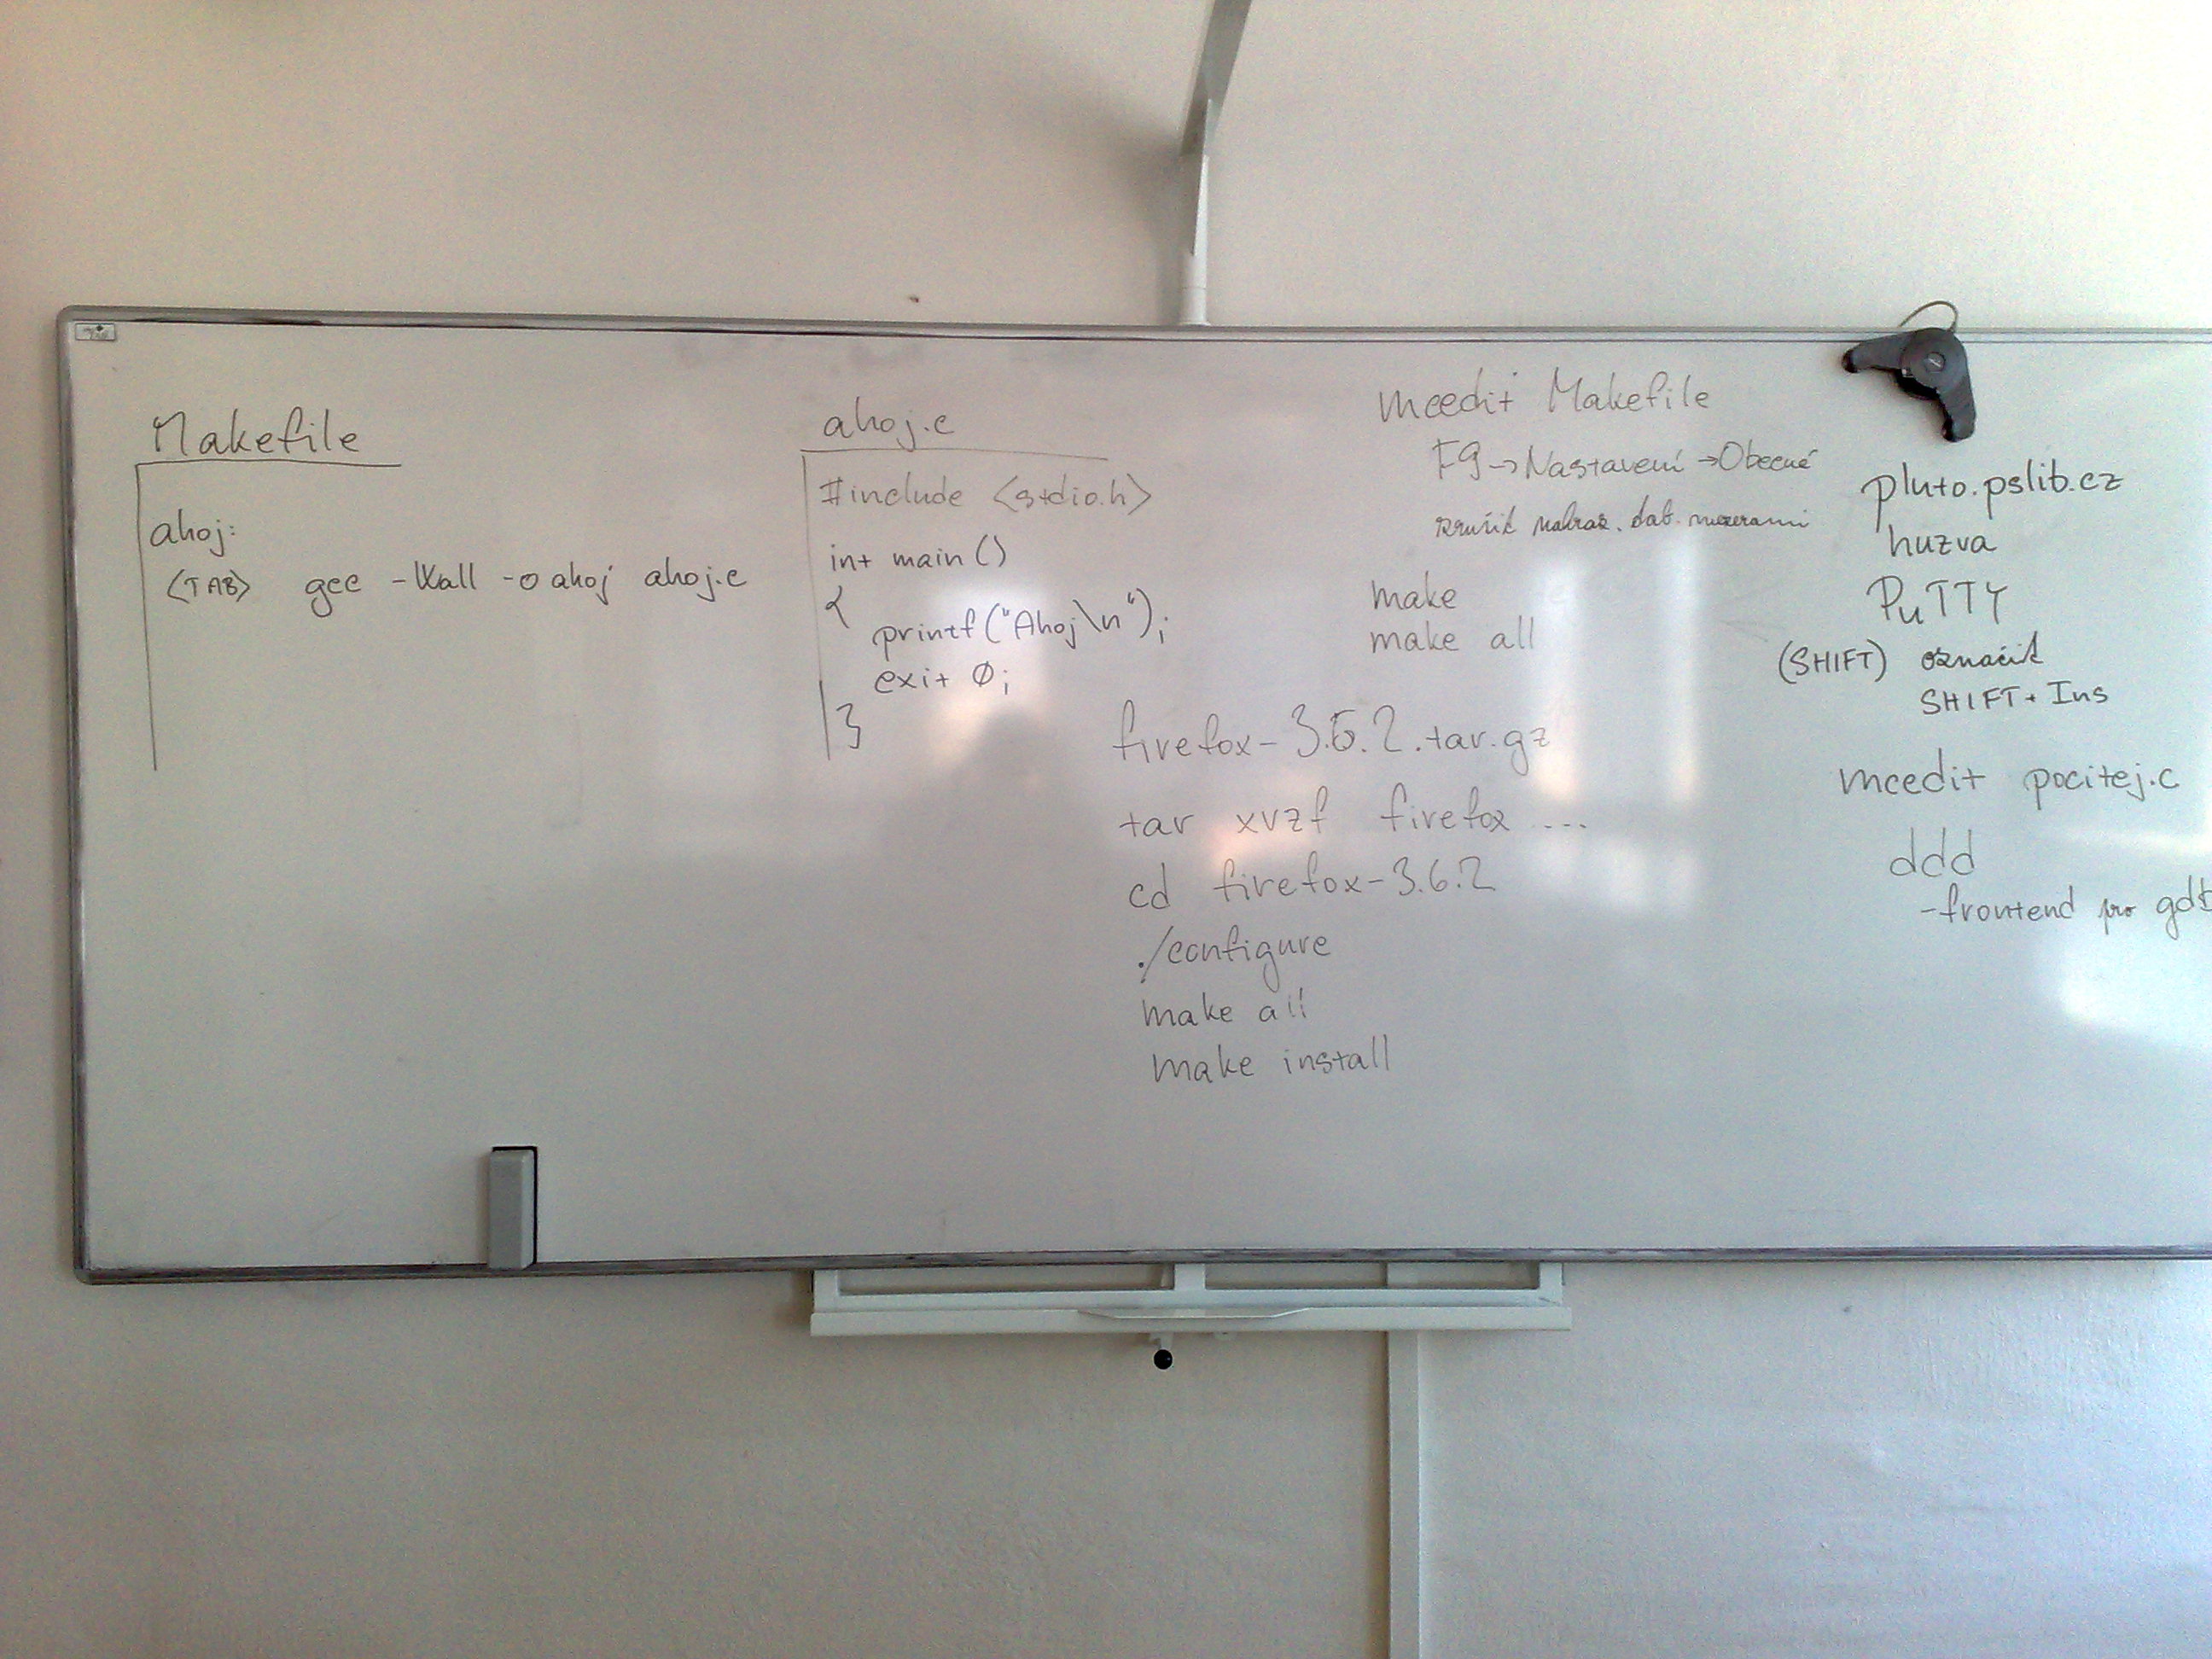 Makefile
ahoj:
<TAB> gcc -Wall -o ahoj ahoj.c
ahoj.c
#include <stdio.h>
int main()
{
printf("Ahoj\n");
exit 0;
}
mcedit Makefile
F9 → Nastavení → Obecné
zrušit nahraz. tab. mezerami
make
make all
firefox-3.6.2.tar.gz
tar xvzf firefox ...
cd firefox-3.6.2
./configure
make all
make install
pluto.pslib.cz
huzva
PuTTY
(SHIFT) označit
SHIFT+Ins
mcedit pocitej.c
ddd
-frontend pro gdb